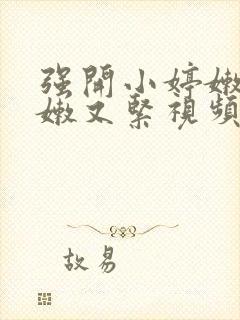 强開小婷嫩
嫩又緊視頻
故易